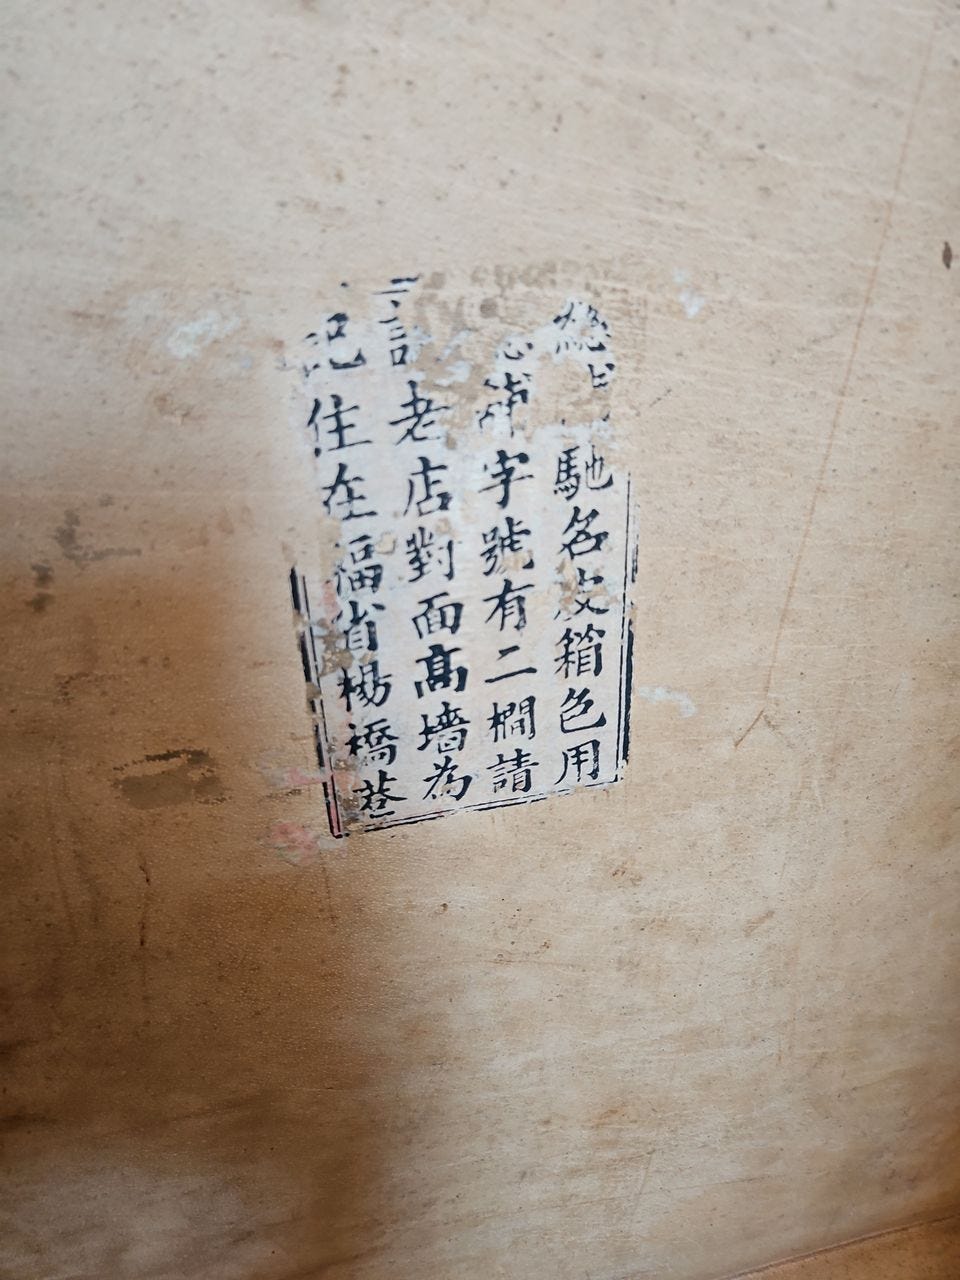 總馳名皮箱色用
字號有二櫊請
認老店對面高墻為
記住在福省楊橋巷